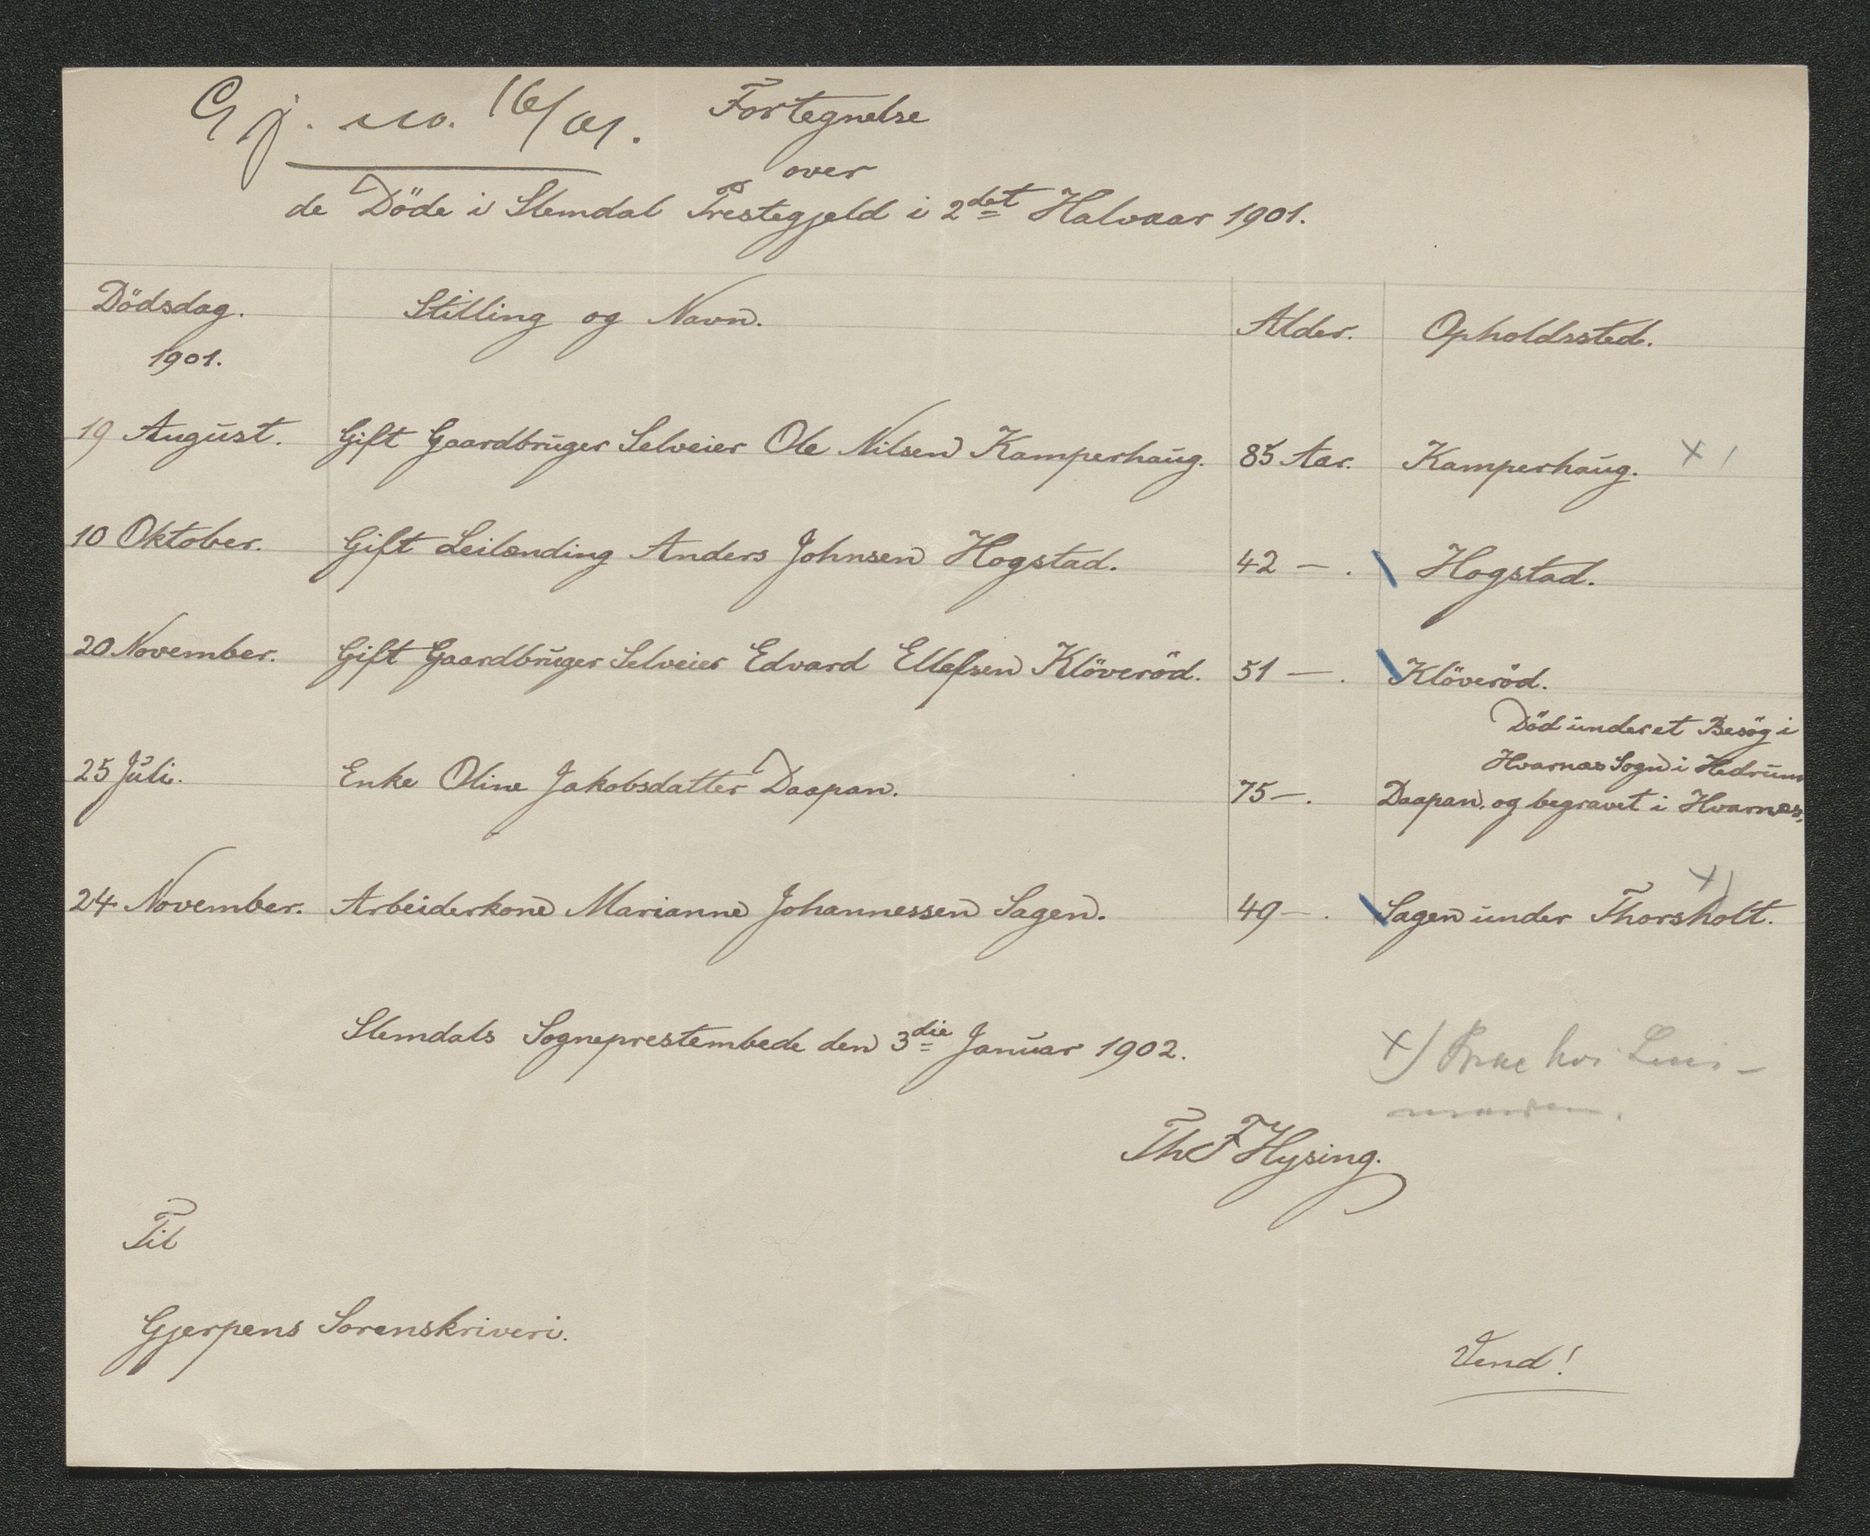 Gj. no. 16/01.
Fortegnelse
over
de Döde i Slemdal Prestegjeld i 2det Halvaar 1901.
Dödsdag. Stilling og Navn. Alder. Opholdssted.
1901.
19 August. Gift Gaardbruger Selveier Ole Nilsen Kamperhaug. 85 Aar. Kamperhaug. x)
10 Oktober. Gift Leilænding Anders Johnsen Hogstad. 42 — . Hogstad.
20 November. Gift Gaardbruger Selveier Edvard Ellefsen Klöveröd. 51 — . Klöveröd.
Död under et Besög i
Hvarnæs Sogn i Hedrum
25 Juli. Enke Oline Jakobsdatter Daapan. 75 —. Daapan. og begravet i Hvarnæs.
24 November. Arbeiderkone Marianne Johannessen Sagen. 49 — . Sagen under Thorsholt. x)
Slemdals Sogneprestembede den 3die Januar 1902.
x) hos
Th F Hysing.
Til
Gjerpens Sorenskriveri.
Vend!